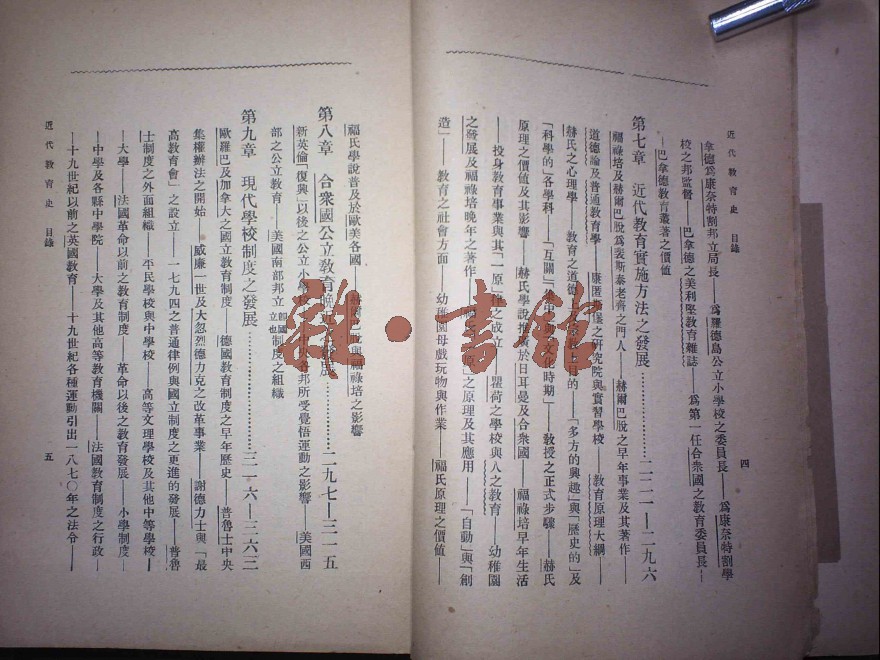 近代教育史 目錄
四
拿德爲康奈特割邦立局長——爲羅德島公立小學校之委員長——爲康奈特割學
校之邦監督——巴拿德之美利堅教育雜誌——爲第一任合衆國之教育委員長——
巴拿德教育叢著之價值
第七章 近代教育實施方法之發展…………二二一—二九六
福祿培及赫爾巴脫爲裴斯泰老齊之門人——赫爾巴脫之早年事業及其著作——
道德論及普通教育學——之研究院與實習學校——教育原理大綱——
赫氏之心理學——教育之道德目的——「多方的興趣」與「歷史的」及
「科學的」各學科——「互關」「集中」與「文化時期」——教授之正式步驟——赫氏
原理之價值及其影響——赫氏學說推於日耳曼及合衆國——福祿培早年生活
——投身教育事業與其「一原」之成立——之學校與人之教育——幼稚園
之發展及福祿培晚年之著作——之原理及其應用——「自動」與「創
造」——教育之社會方面——幼稚園母戲玩物與作業——福氏原理之價值——
福氏學說普及於歐美各國——赫爾巴脫與福祿培之影響
第八章 合衆國公立教育發展…………二九七—三一五
新英倫「復興」以後之公立小學校——各邦所受覺悟運動之影響——美國西
部之公立教育——美國南部邦立卽國立也制度之組織
第九章 現代學校制度之發展…………三一六—三六三
歐羅巴及加拿大之國立教育制度——德國教育制度之早年歷史——普魯士中央
集權辦法之開始——威廉一世及大忽烈德力克之改革事業——謝德力士與「最
高教育會」之設立——一七九四之普通律例與國立制度之更進的發展——普魯
士制度之外面組織——平民學校與中學校——高等文理學校及其他中等學校——
——大學——法國革命以前之教育制度——革命以後之教育發展——小學制度——
——中學及各縣中學院——大學及其他高等教育機關——法國教育制度之行政——
——十九世紀以前之英國教育——十九世紀各種運動引出一八七〇年之法令——
近代教育史 目錄
五
書館